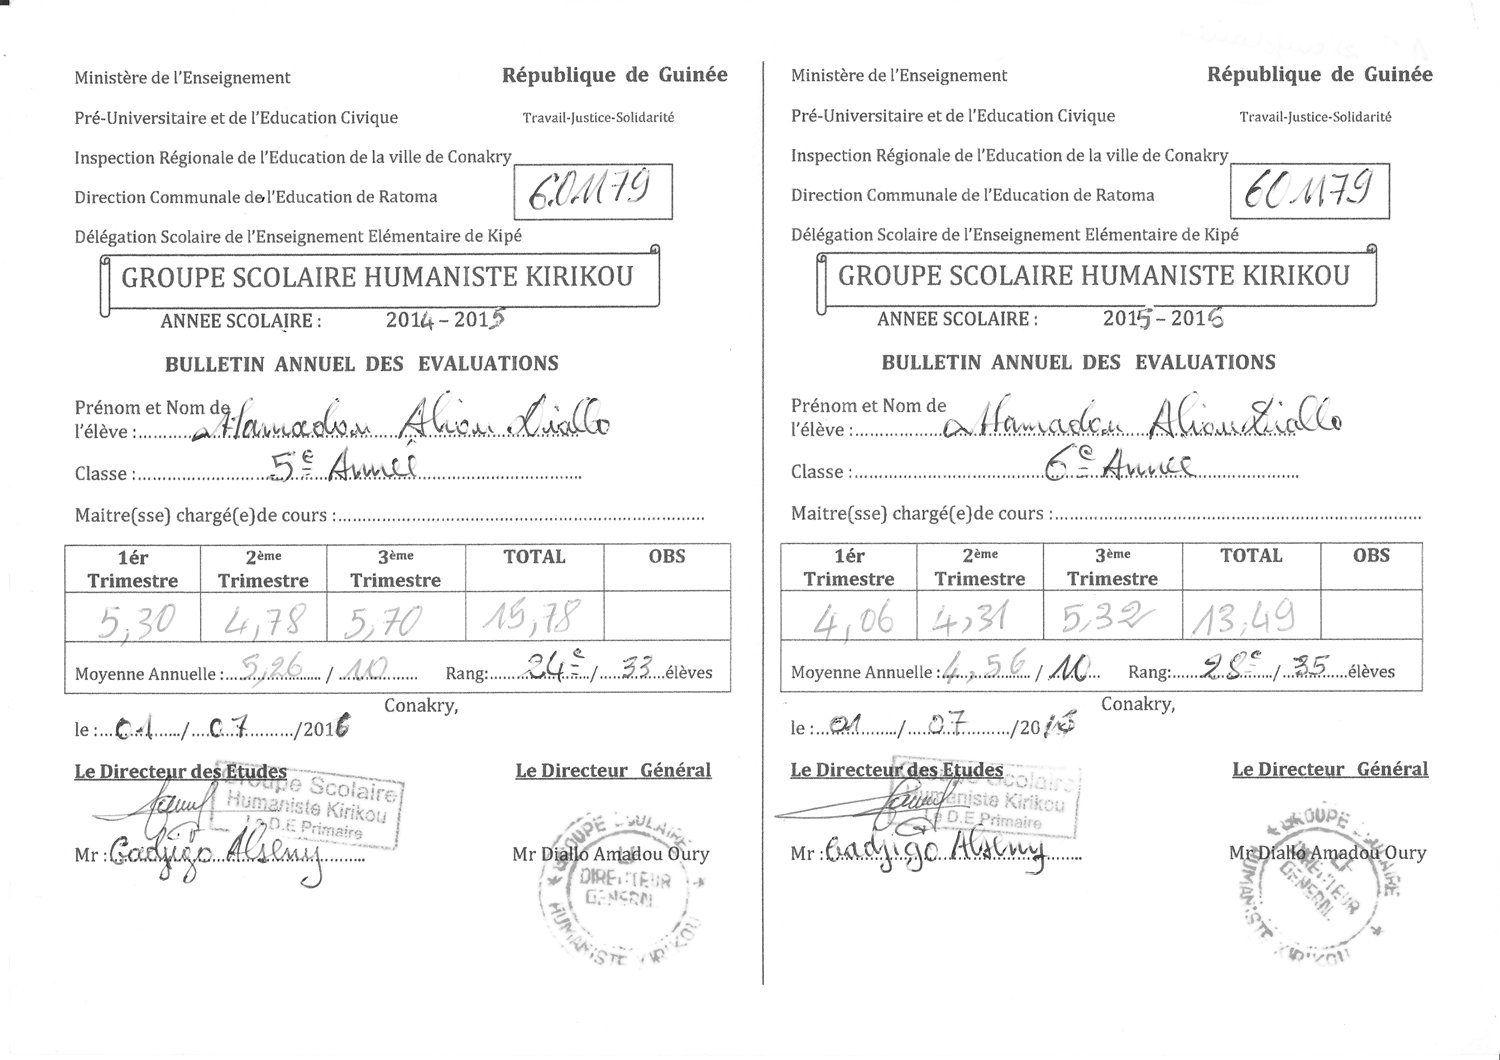 Ministère de l'Enseignement
République de Guinée
Pré-Universitaire et de l'Education Civique
Travail-Justice-Solidarité
Inspection Régionale de l'Education de la ville de Conakry
Direction Communale de l'Education de Ratoma
601179
Délégation Scolaire de l'Enseignement Elémentaire de Kipé
GROUPE SCOLAIRE HUMANISTE KIRIKOU
ANNEE SCOLAIRE : 2014 – 2015
BULLETIN ANNUEL DES EVALUATIONS
Prénom et Nom de
l'élève : Mamadou Aliou Diallo
Classe : 5e Année
Maitre(sse) chargé(e)de cours :
1ér Trimestre 2ème Trimestre 3ème Trimestre TOTAL OBS
5,30 4,78 5,70 15,78
Moyenne Annuelle : 5,26 / 10 Rang: 24e / 33 élèves
Conakry,
le : 01 / 07 /2016
Le Directeur des Etudes
Le Directeur Général
Groupe Scolaire
Humaniste Kirikou
Le D.E Primaire
Mr : Gadjigo Alseny
Mr Diallo Amadou Oury
GROUPE SCOLAIRE
LE DIRECTEUR GENERAL
HUMANISTE KIRIKOU
Ministère de l'Enseignement
République de Guinée
Pré-Universitaire et de l'Education Civique
Travail-Justice-Solidarité
Inspection Régionale de l'Education de la ville de Conakry
Direction Communale de l'Education de Ratoma
601179
Délégation Scolaire de l'Enseignement Elémentaire de Kipé
GROUPE SCOLAIRE HUMANISTE KIRIKOU
ANNEE SCOLAIRE : 2015 – 2016
BULLETIN ANNUEL DES EVALUATIONS
Prénom et Nom de
l'élève : Mamadou Aliou Diallo
Classe : 6e Année
Maitre(sse) chargé(e)de cours :
1ér Trimestre 2ème Trimestre 3ème Trimestre TOTAL OBS
4,06 4,31 5,32 13,49
Moyenne Annuelle : 4,56 / 10 Rang: 28e / 35 élèves
Conakry,
le : 01 / 07 /20
Le Directeur des Etudes
Le Directeur Général
Groupe Scolaire
Humaniste Kirikou
Le D.E Primaire
Mr : Gadjigo Alseny
Mr Diallo Amadou Oury
GROUPE SCOLAIRE
LE DIRECTEUR GENERAL
HUMANISTE KIRIKOU